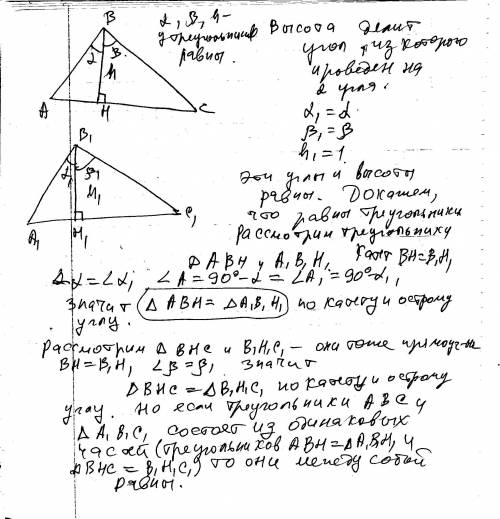 B
α β
h
A H C
α, β, h –
у треугольников
равны.
Высота делит
угол, из которого
проведен на
2 угла.
α₁ = α
β₁ = β
h₁ = 1
B₁
α₁ β₁
h₁
A₁ H₁ C₁
Эти углы и высоты
равны. Докажем,
что равны треугольники
Рассмотрим треугольники
Δ ABH и A₁B₁H₁ Катет BH=B₁H₁
∠α = ∠α₁, ∠A = 90°-α = ∠A₁ = 90°-α₁,
значит Δ ABH = ΔA₁B₁H₁ по катету и острому
углу.
Рассмотрим Δ BHC и B₁H₁C₁ – они тоже
BH = B₁H₁ ∠β = β₁ значит
ΔBHC = ΔB₁H₁C₁ по катету и острому
углу. Но если треугольники ABC и
Δ A₁B₁C₁ состоят из одинаковых
частей (треугольников ABH = ΔA₁B₁H₁ и
ΔBHC = B₁H₁C₁) то они между собой
равны.